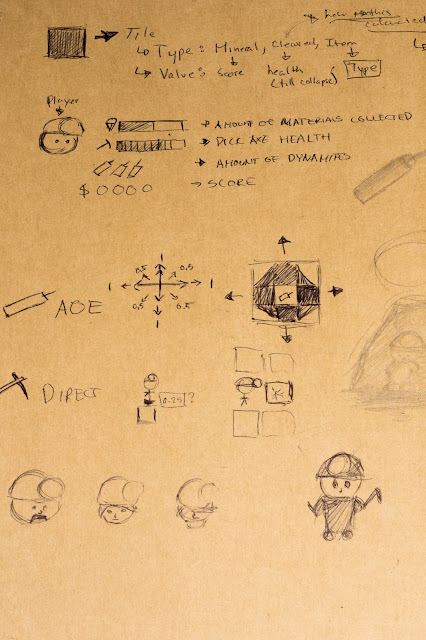 Tile
Type: Mineral, Cleared, Item
Value: Score health Type
(till collapse)
Player
AMOUNT OF MATERIALS COLLECTED
PICK AXE HEALTH
AMOUNT OF DYNAMITES
$0000 SCORE
0,5 0,5
1 1
0,5 0,5
AOE
DIRECT
0.25 ?